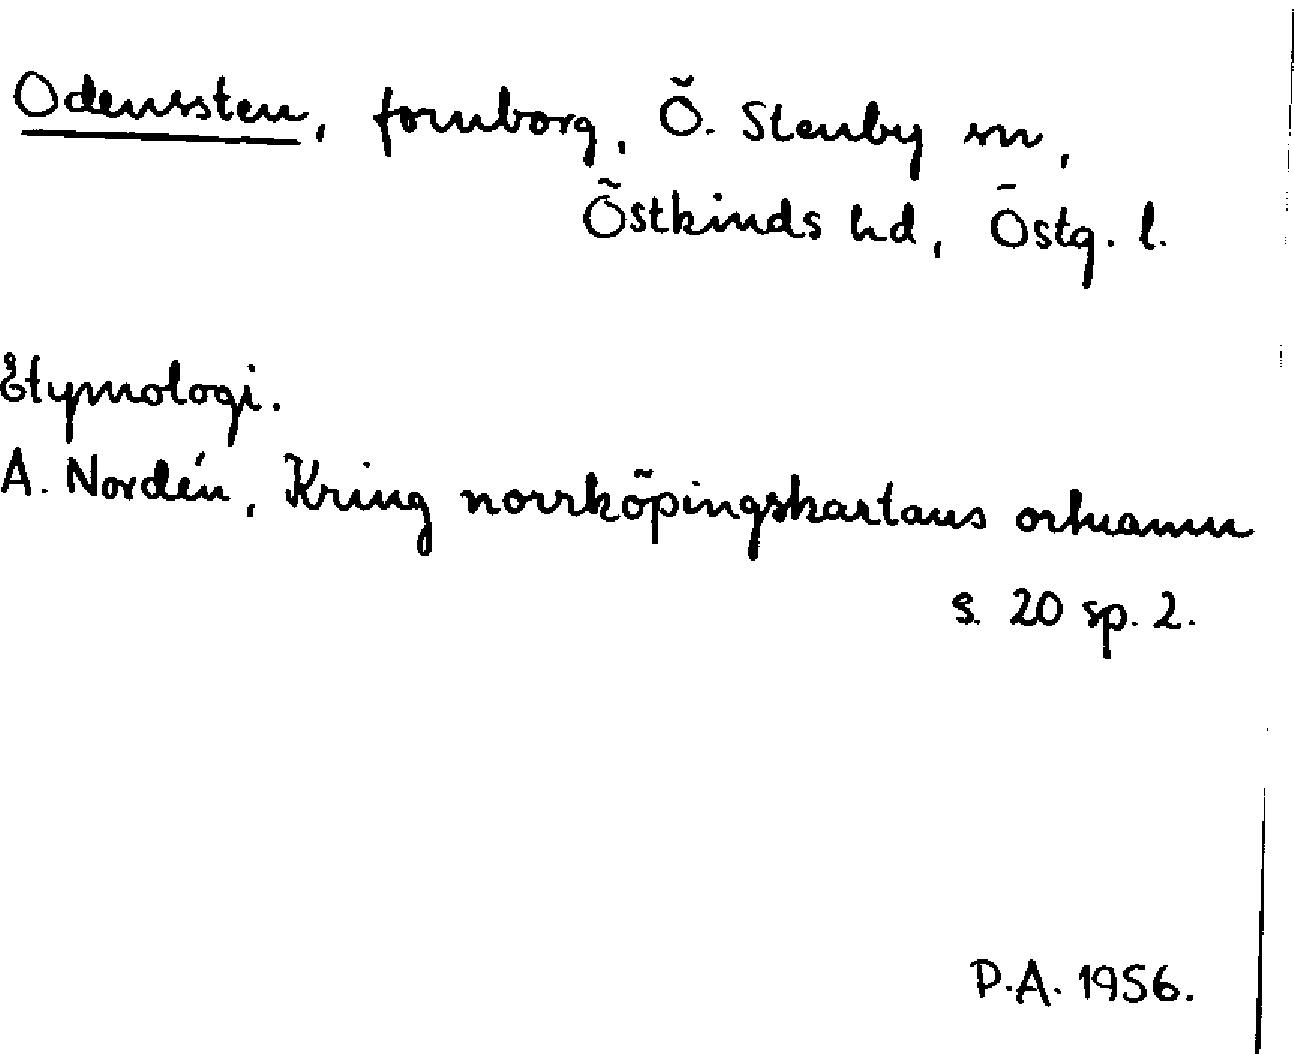 Odenssten, fornborg, Ö. Stenby sn,
Östkinds hd, Östg. l.
Etymologi.
A. Nordén, Kring norrköpingskartans ortnamn
s. 20 sp. 2.
P.A. 1956.